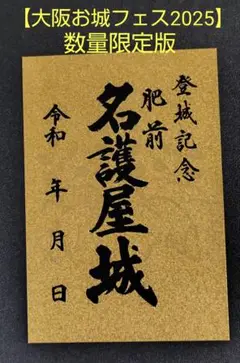 【大阪お城フェス2025】
数量限定版
登城記念
肥前
名護屋城
令和 年 月 日